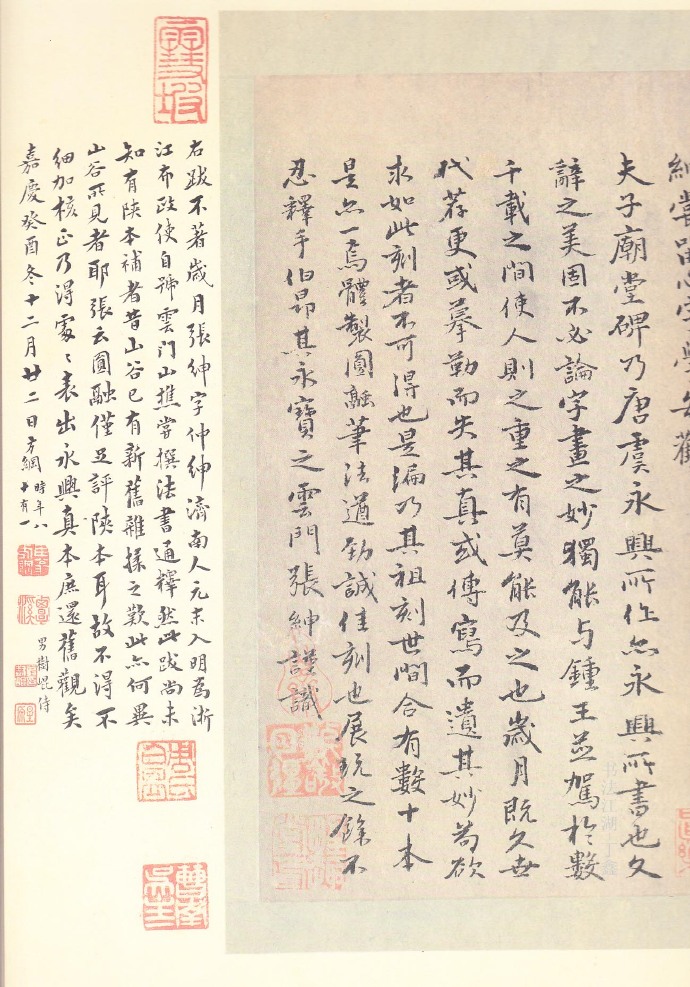 嘗留心字學每觀
夫子廟堂碑乃唐虞永興所作亦永興所書也文
辭之美固不必論字畫之妙獨能与鍾王並駕於數
千載之間使人則之重之有莫能及之也歲月既久世
代荐更或摹勒而失其真或傳寫而遺其妙苟欲
求如此刻者不可得也是編乃其祖刻世間合有數十本
是亦一焉體製圓融筆法遒勁誠佳刻也展玩之餘不
忍釋手伯昂其永寶之雲門張紳謹識
右跋不著歲月張紳字仲紳濟南人元末入明為浙
江布政使自號雲門山樵嘗撰法書通釋然此跋尚未
知有陝本補者昔山谷已有新舊雜揉之歎此亦何異
山谷所見者耶張云圓融僅足評陝本耳故不得不
細加核正乃得處〻表出永興真本庶還舊觀矣
嘉慶癸酉冬十二月廿二日方綱時年八十有一
男樹崐侍
书法江湖